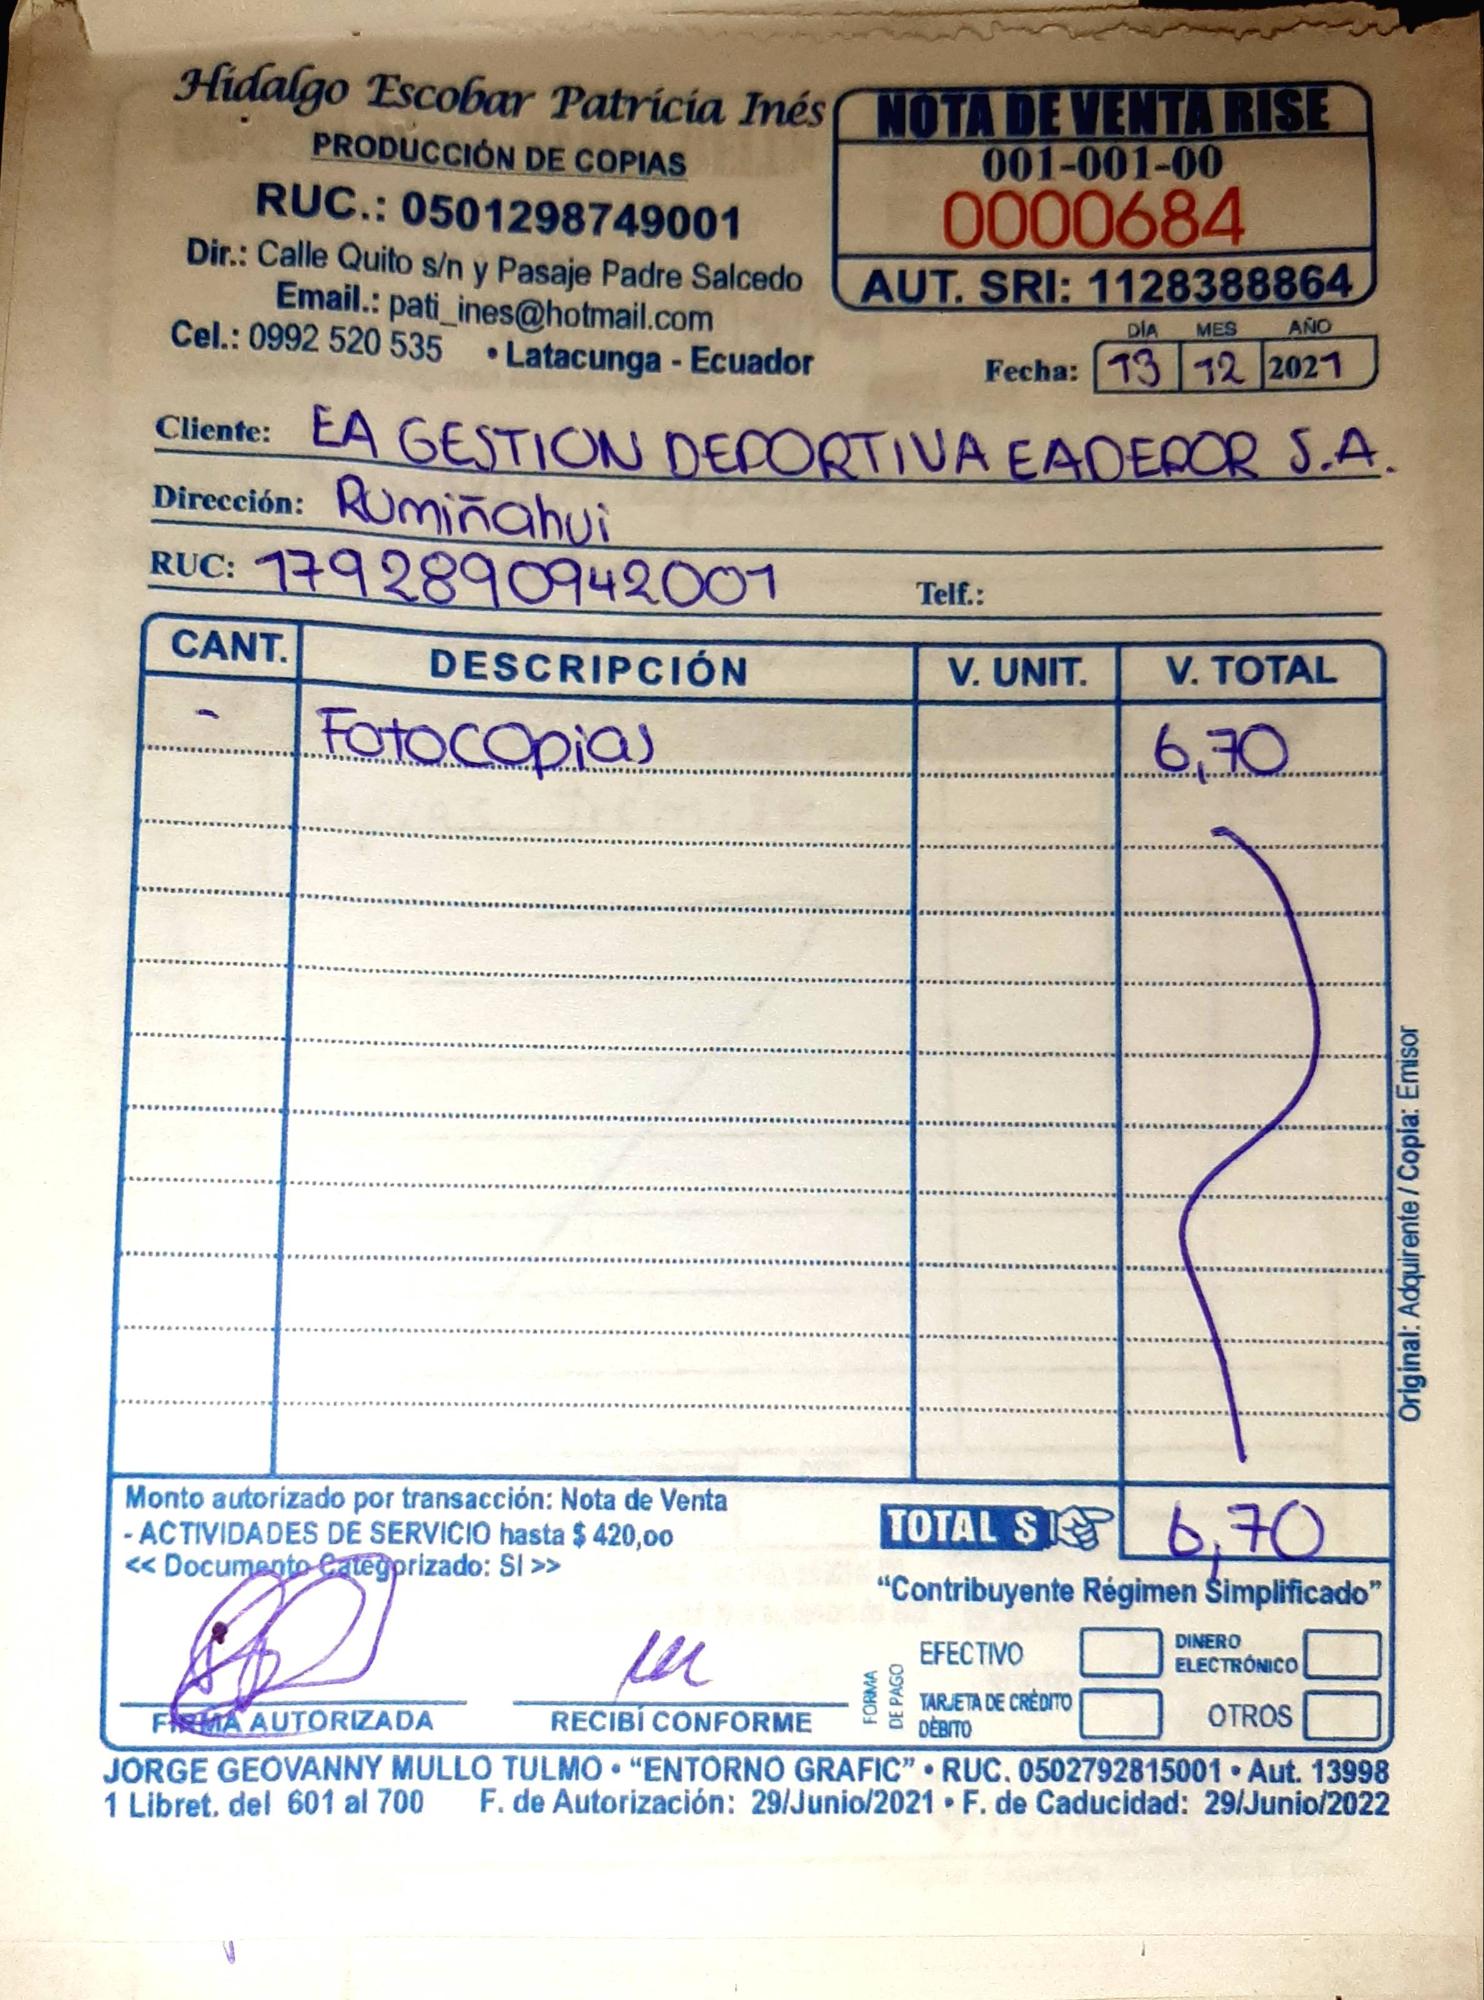 Hidalgo Escobar Patricia Inés
PRODUCCIÓN DE COPIAS
RUC.: 0501298749001
Dir.: Calle Quito s/n y Pasaje Padre Salcedo
Email.: pati_ines@hotmail.com
Cel.: 0992 520 535 • Latacunga - Ecuador
NOTA DE VENTA RISE
001-001-00
0000684
AUT. SRI: 1128388864
DÍA MES AÑO
Fecha: 13 12 2021
Cliente: EA GESTION DEPORTIVA EADEPOR S.A.
Dirección: Rumiñahui
RUC: 1792890942001 Telf.:
CANT. DESCRIPCIÓN V. UNIT. V. TOTAL
- Fotocopias 6,70
Original: Adquirente / Copia: Emisor
Monto autorizado por transacción: Nota de Venta
- ACTIVIDADES DE SERVICIO hasta $ 420,oo
<< Documento Categorizado: SI >>
TOTAL $ 6,70
“Contribuyente Régimen Simplificado”
FIRMA AUTORIZADA
RECIBÍ CONFORME
FORMA DE PAGO
EFECTIVO
DINERO ELECTRÓNICO
TARJETA DE CRÉDITO
DÉBITO
OTROS
JORGE GEOVANNY MULLO TULMO • “ENTORNO GRAFIC” • RUC. 0502792815001 • Aut. 13998
1 Libret. del 601 al 700 F. de Autorización: 29/Junio/2021 • F. de Caducidad: 29/Junio/2022